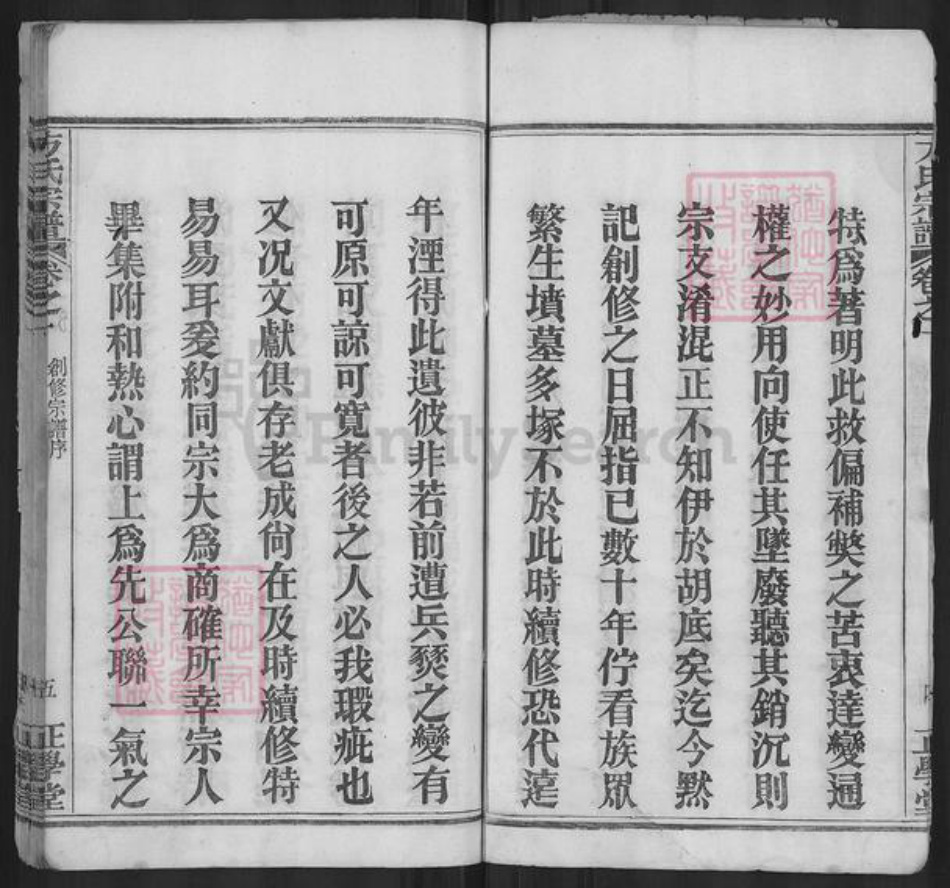 特爲著明此救偏補獘之苦衷達變通
權之妙用向使任其墜廢聽其銷沉則
宗支淆混正不知伊於胡底矣迄今默
記創修之日屈指已數十年佇看族眾
繁生墳墓多塚不於此時續修恐代遠
年湮得此遺彼非若前遭兵燹之變有
可原可諒可寬者後之人必我瑕疵也
又况文獻俱存老成尙在及時續修特
易易耳爰約同宗大爲商確所幸宗人
畢集附和熱心謂上爲先公聯一氣之
方氏宗譜
卷之一
創修宗譜序
五
正學堂
FamilySearch